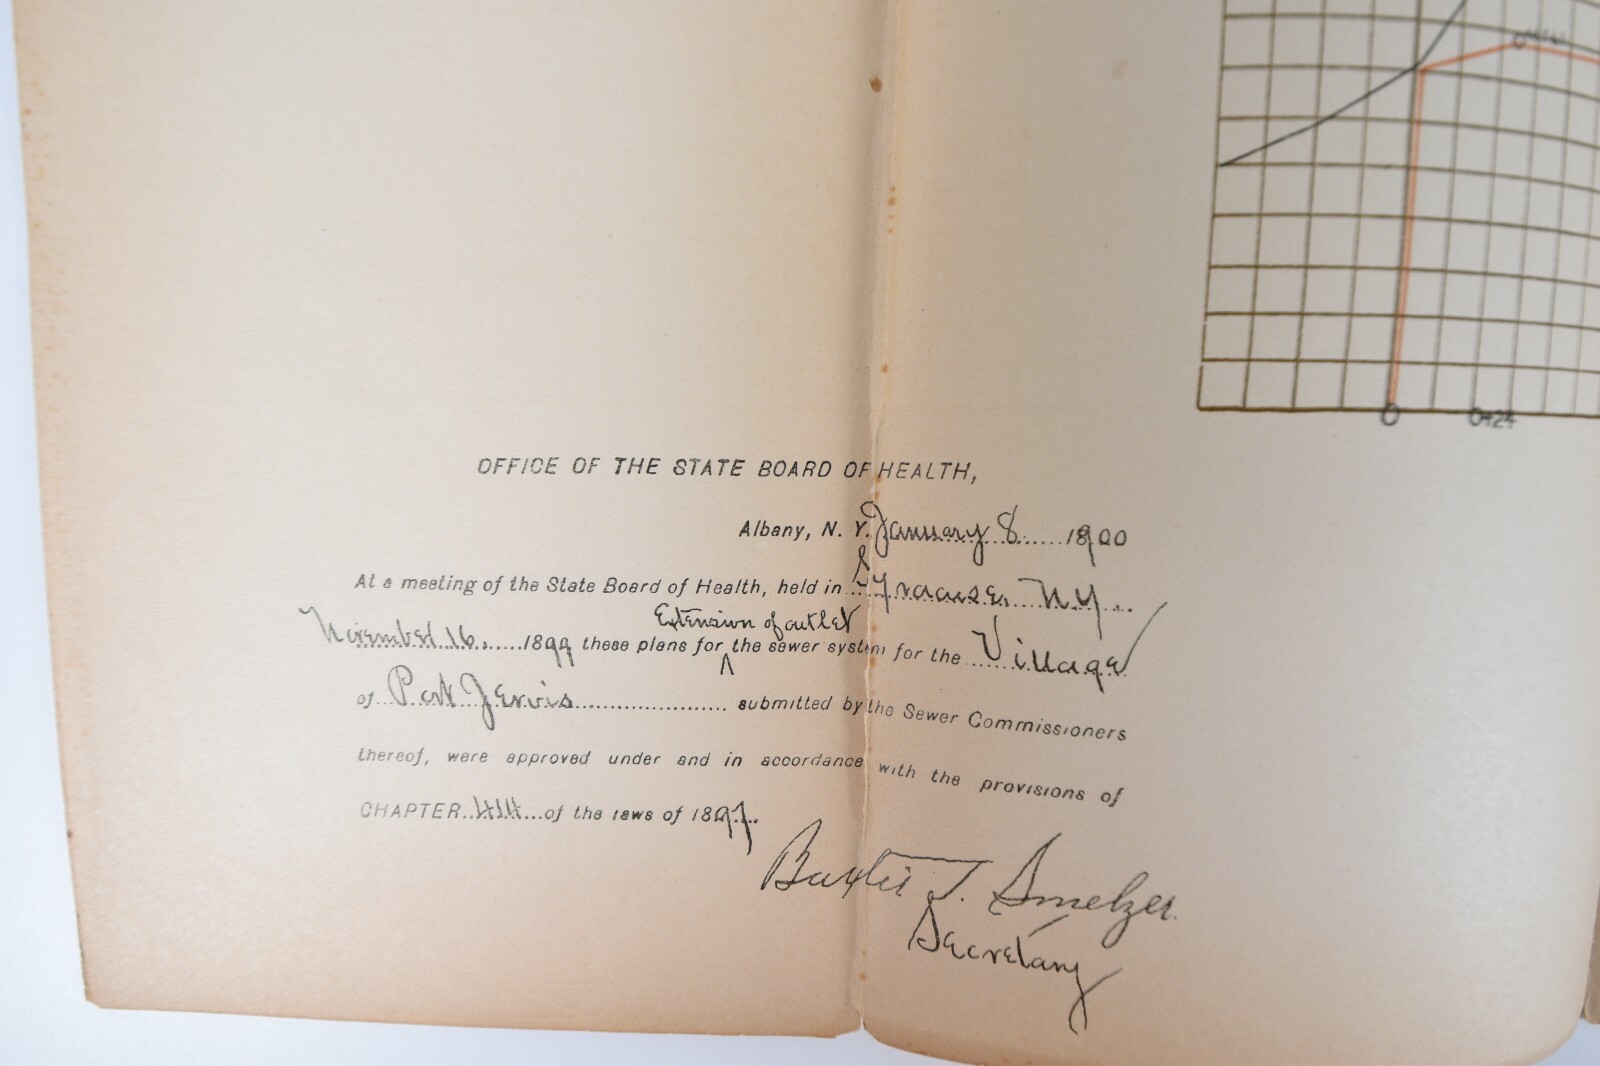 OFFICE OF THE STATE BOARD OF HEALTH,
Albany, N. Y. January 8 1900
At a meeting of the State Board of Health, held in Syracuse, N.Y.
Extension of outlet
November 16, 1899 these plans for ^ the sewer system for the Village
of Port Jervis submitted by the Sewer Commissioners
thereof, were approved under and in accordance with the provisions of
CHAPTER 414 of the laws of 1897.
Baxter T. Smelzer.
Secretary
0 0+24